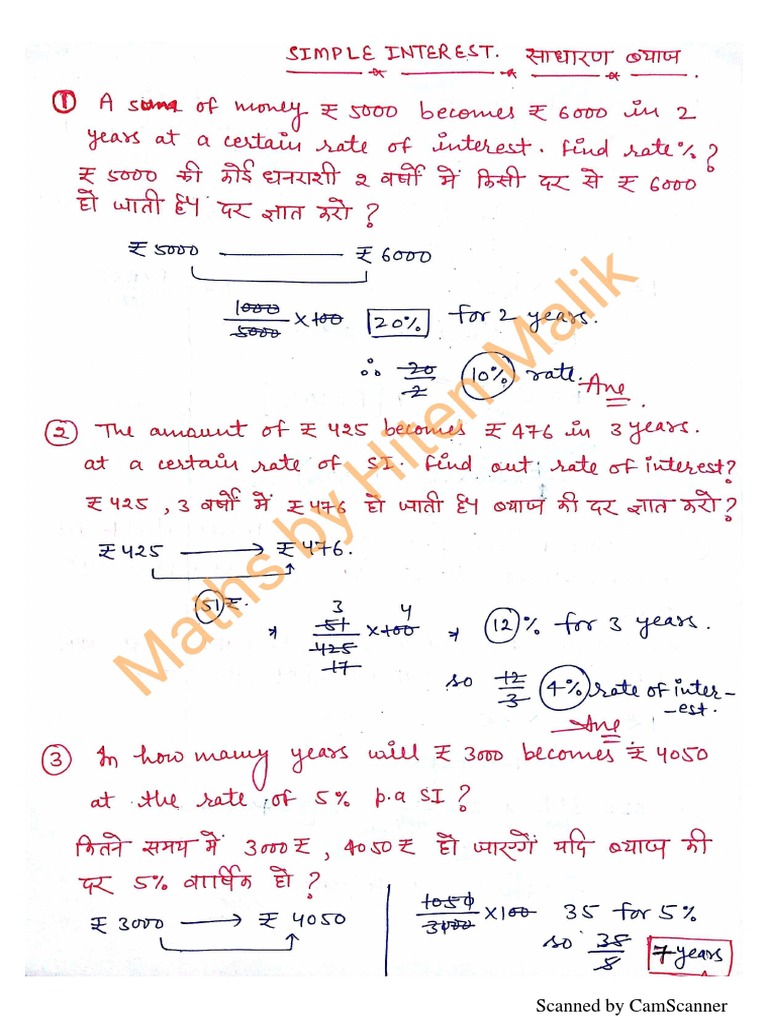 SIMPLE INTEREST. साधारण ब्याज
① A sum of money ₹ 5000 becomes ₹ 6000 in 2
years at a certain rate of interest. find rate%?
₹ 5000 की कोई धनराशी 2 वर्षों में किसी दर से ₹ 6000
हो जाती है। दर ज्ञात करो?
₹ 5000 ₹ 6000
1000/5000 ×100 20% for 2 years.
∴ 20/2 10% rate. Ans
② The amount of ₹ 425 becomes ₹ 476 in 3 years.
at a certain rate of SI. find out rate of interest?
₹ 425, 3 वर्षों में ₹ 476 हो जाती है। ब्याज की दर ज्ञात करो?
₹ 425 → ₹ 476.
51 ₹.
3 4
51/425 ×100 12% for 3 years.
17
so 12/3 4% rate of inter-
-est.
Ans
③ In how many years will ₹ 3000 becomes ₹ 4050
at the rate of 5% p.a SI?
कितने समय में 3000 ₹, 4050 ₹ हो जाएगें यदि ब्याज की
दर 5% वार्षिक हो?
₹ 3000 → ₹ 4050
1050/3000 ×100 35 for 5%
so 35/5 7 years
Maths by Hitem Malik
Scanned by CamScanner